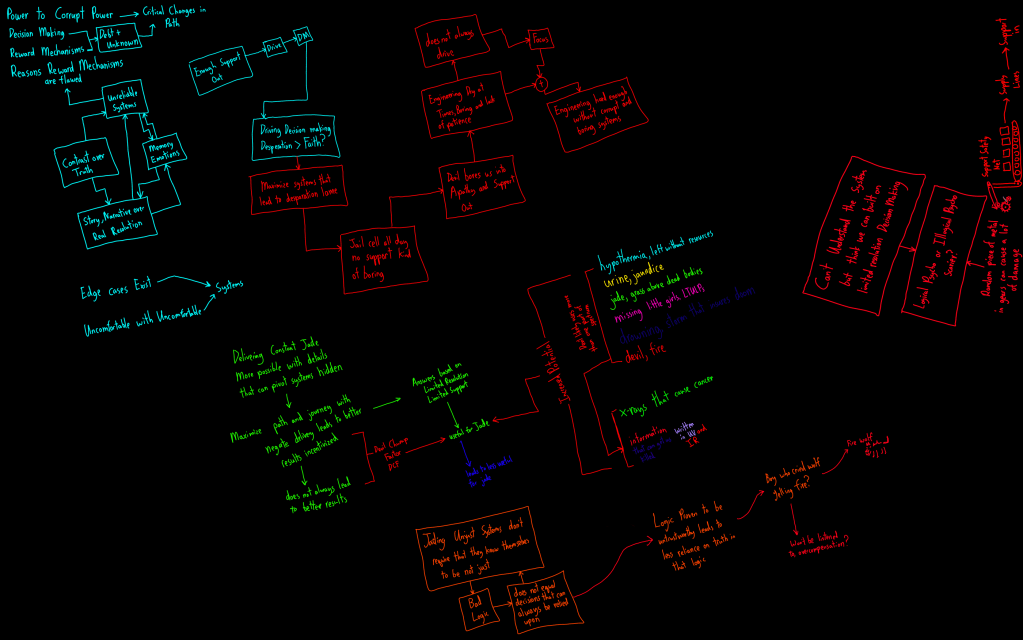 Power to Corrupt Power
Critical Changes in
Path
Decision Making
Debt +
Unknown
Reward Mechanisms
Reasons Reward Mechanisms
are flawed
Unreliable
Systems
Contrast over
Truth
Memory
Emotions
Story, Narrative over
Real Resolution
Enough Support
Out
Drive
DM
Driving Decision making
Desperation > Faith?
Maximize systems that
lead to desperation
Jail cell all day
no support kid
of boring
Don't bores us into
Apathy and Support
Out
Engineering Dry at
Times, Boring and lack
of patience
does not always
drive
Focus
+
Engineering hard enough
without corrupt and
boring systems
Edge cases Exist
Systems
Uncomfortable with Uncomfortable
Delivering Constant Jade
More possible with details
that can pivot systems hidden
Maximize path and journey with
negate delivery leads to better
results incentivized
does not always lead
to better results
Answers based on
Limited Resolution
Limited Support
useful for Jade
for jade
hypothermia, left without resources
urine, jaundice
jade, grass above dead bodies
missing little girls
devil, fire
X-Rays that cause cancer
information
written
in UV
and
IR
Can't Understand the System
but think we can built on
limited resolution Decision Making
Logical Psycho or Illogical Psycho
Scarier?
Random piece of metal
in gears can cause a lot
of damage
Support Safety
Net
Supply
Lines
Support
Jading Unjust Systems don't
require that they know themselves
to be not just
Bad
Logic
does not equal
decisions that can
always be relied
upon
Logic Proven to be
untrustworthy leads to
less reliance on truth in
that logic
Boy who cried wolf
yelling fire?
Fire wolf
Won't be listened
to overcompensation?